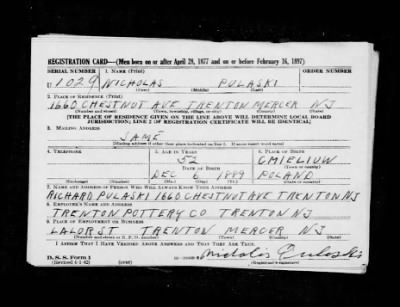 REGISTRATION CARD—(Men born on or after April 28, 1877 and on or before February 16, 1897)
SERIAL NUMBER 1. NAME (Print) ORDER NUMBER
U 1029 NICHOLAS PULASKI
(First) (Middle) (Last)
2. PLACE OF RESIDENCE (Print)
1660 CHESTNUT AVE TRENTON MERCER NJ
(Number and street) (Town, township, village, or city) (County) (State)
[THE PLACE OF RESIDENCE GIVEN ON THE LINE ABOVE WILL DETERMINE LOCAL BOARD
JURISDICTION; LINE 2 OF REGISTRATION CERTIFICATE WILL BE IDENTICAL]
3. MAILING ADDRESS
SAME
[Mailing address if other than place indicated on line 2. If same insert word same]
4. TELEPHONE 5. AGE IN YEARS 6. PLACE OF BIRTH
52 CMIELIUW
DATE OF BIRTH (Town or county)
DEC 6 1889 POLAND
(Exchange) (Number) (Mo.) (Day) (Yr.) (State or country)
7. NAME AND ADDRESS OF PERSON WHO WILL ALWAYS KNOW YOUR ADDRESS
RICHARD PULASKI 1660 CHESTNUT AVE TRENTON NJ
8. EMPLOYER'S NAME AND ADDRESS
TRENTON POTTERY CO TRENTON NJ
9. PLACE OF EMPLOYMENT OR BUSINESS
LALOR ST TRENTON MERCER NJ
(Number and street or R. F. D. number) (Town) (County) (State)
I AFFIRM THAT I HAVE VERIFIED ABOVE ANSWERS AND THAT THEY ARE TRUE.
D. S. S. Form 1
(Revised 4-1-42) (over) Nicholas Pulaski
(Registrant's signature)